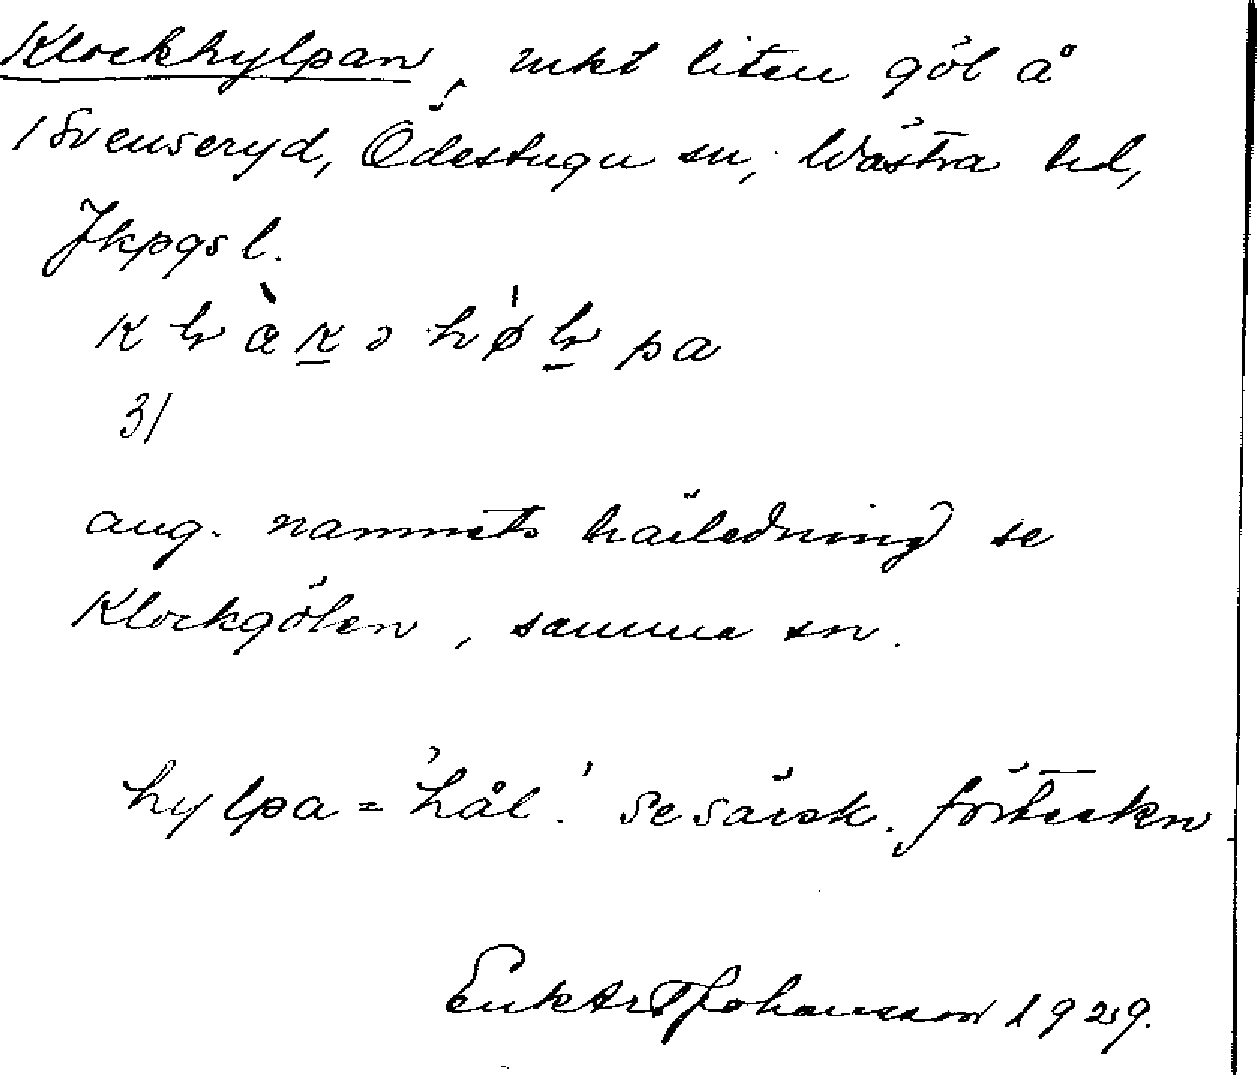 Klockhylpan, mkt liten göl å
/ Svenseryd, Ödestugu sn, Västra hd,
Jkpgs l.
31
ang. namnets härledning se
Klockgölen, samma sn.
hylpa = 'hål'. Se särsk. förteckn
Johansson 1929.